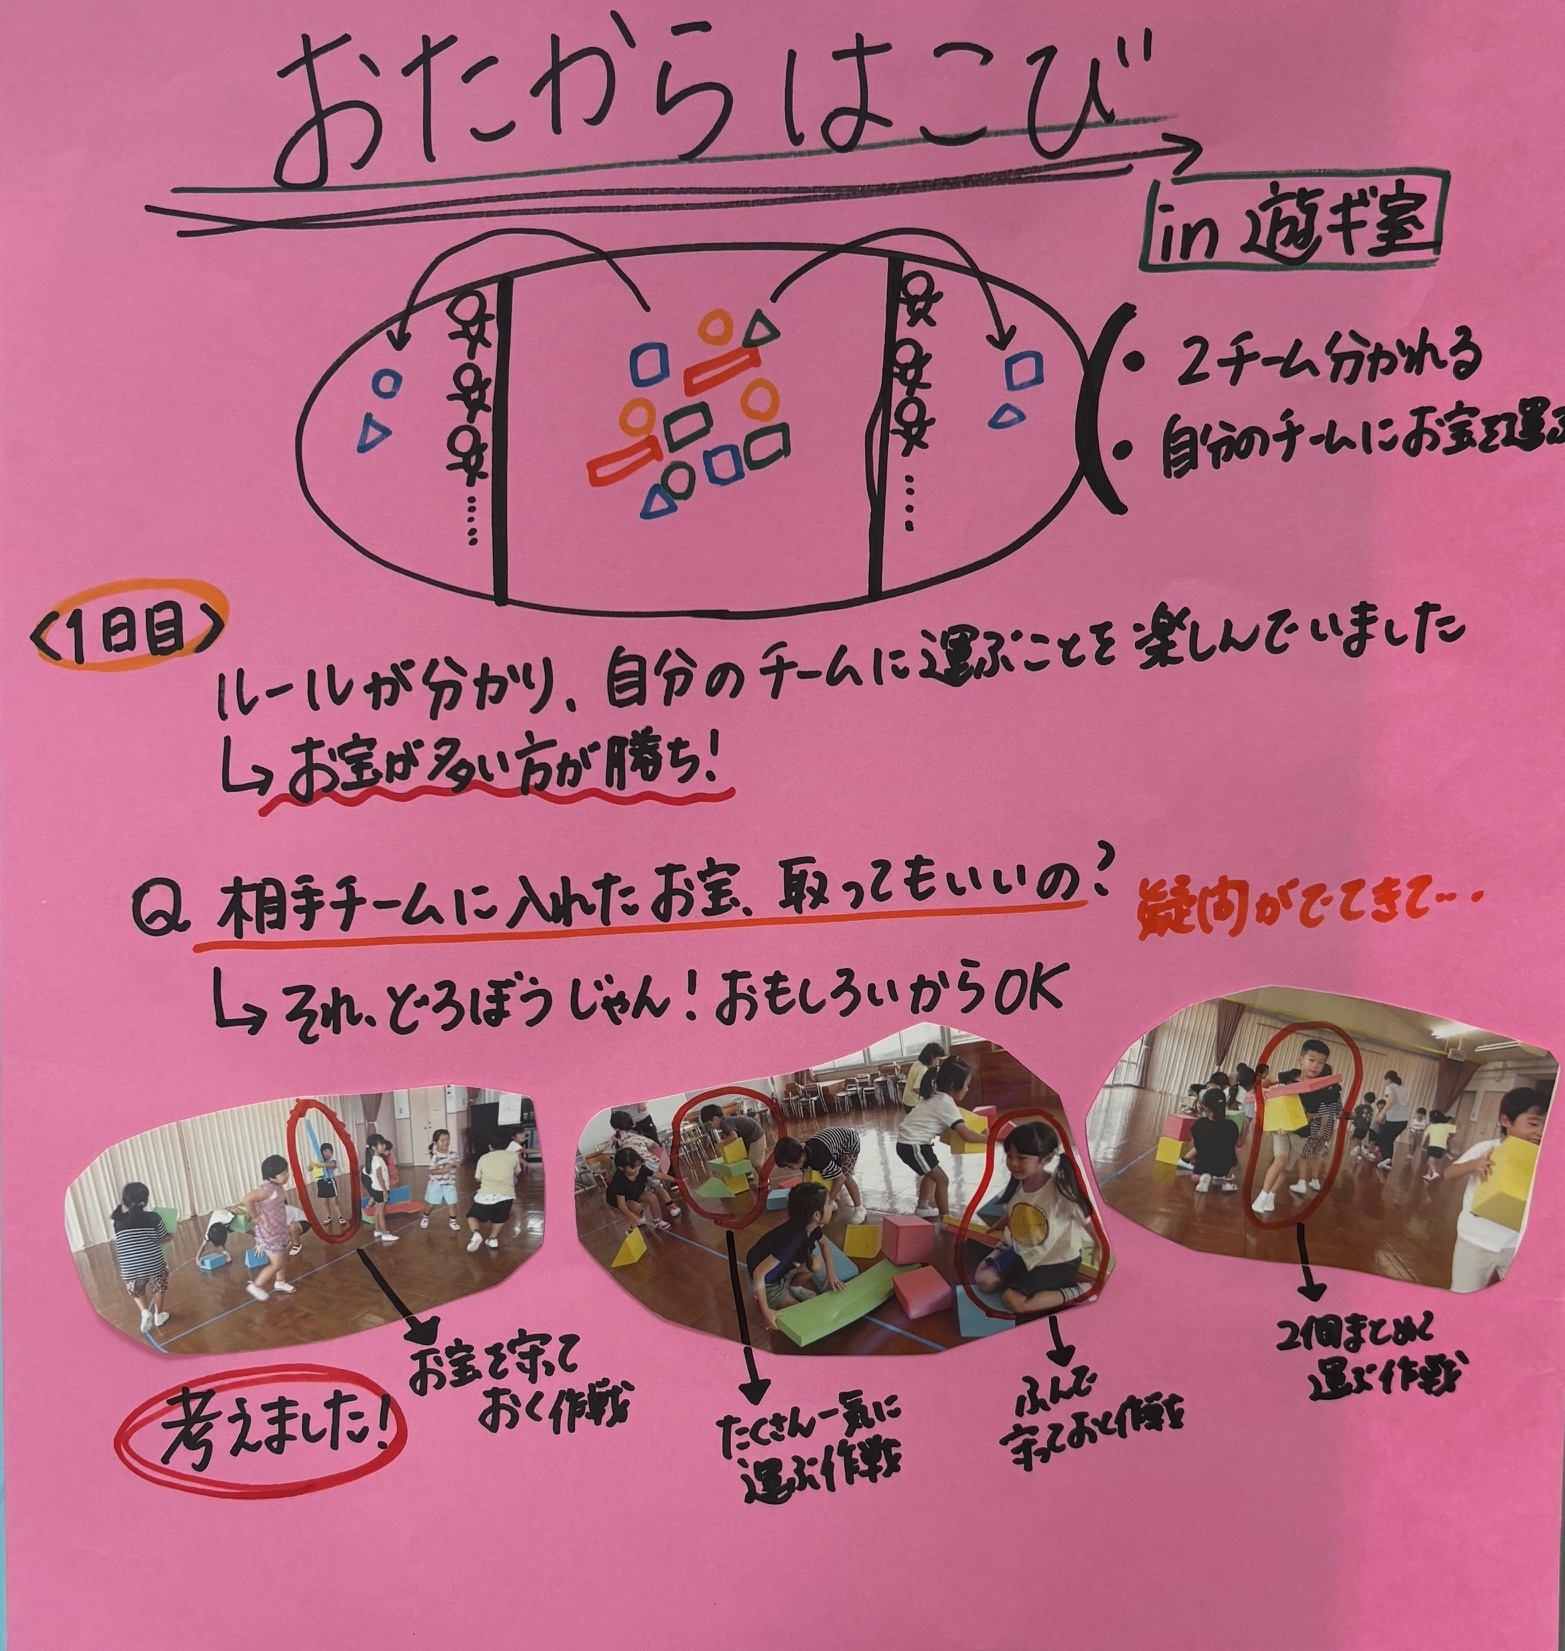 おたからはこび
in 遊ギ室
・2チーム分かれる
・自分のチームにお宝を運ぶ
<1日目>
ルールが分かり、自分のチームに運ぶことを楽しんでいました
↳お宝が多い方が勝ち!
Q 相手チームに入れたお宝、取ってもいいの?
疑問がでてきて…
↳それ、どろぼうじゃん!おもしろいからOK
お宝を守って
おく作戦
考えました!
たくさん一気に
運ぶ作戦
ふんで
守っておく作戦
2個まとめて
運ぶ作戦